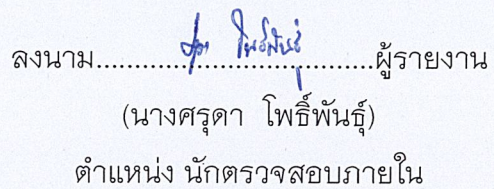 ลงนาม.......................................ผู้รายงาน
(นางศรุดา โพธิ์พันธุ์)
ตำแหน่ง นักตรวจสอบภายใน